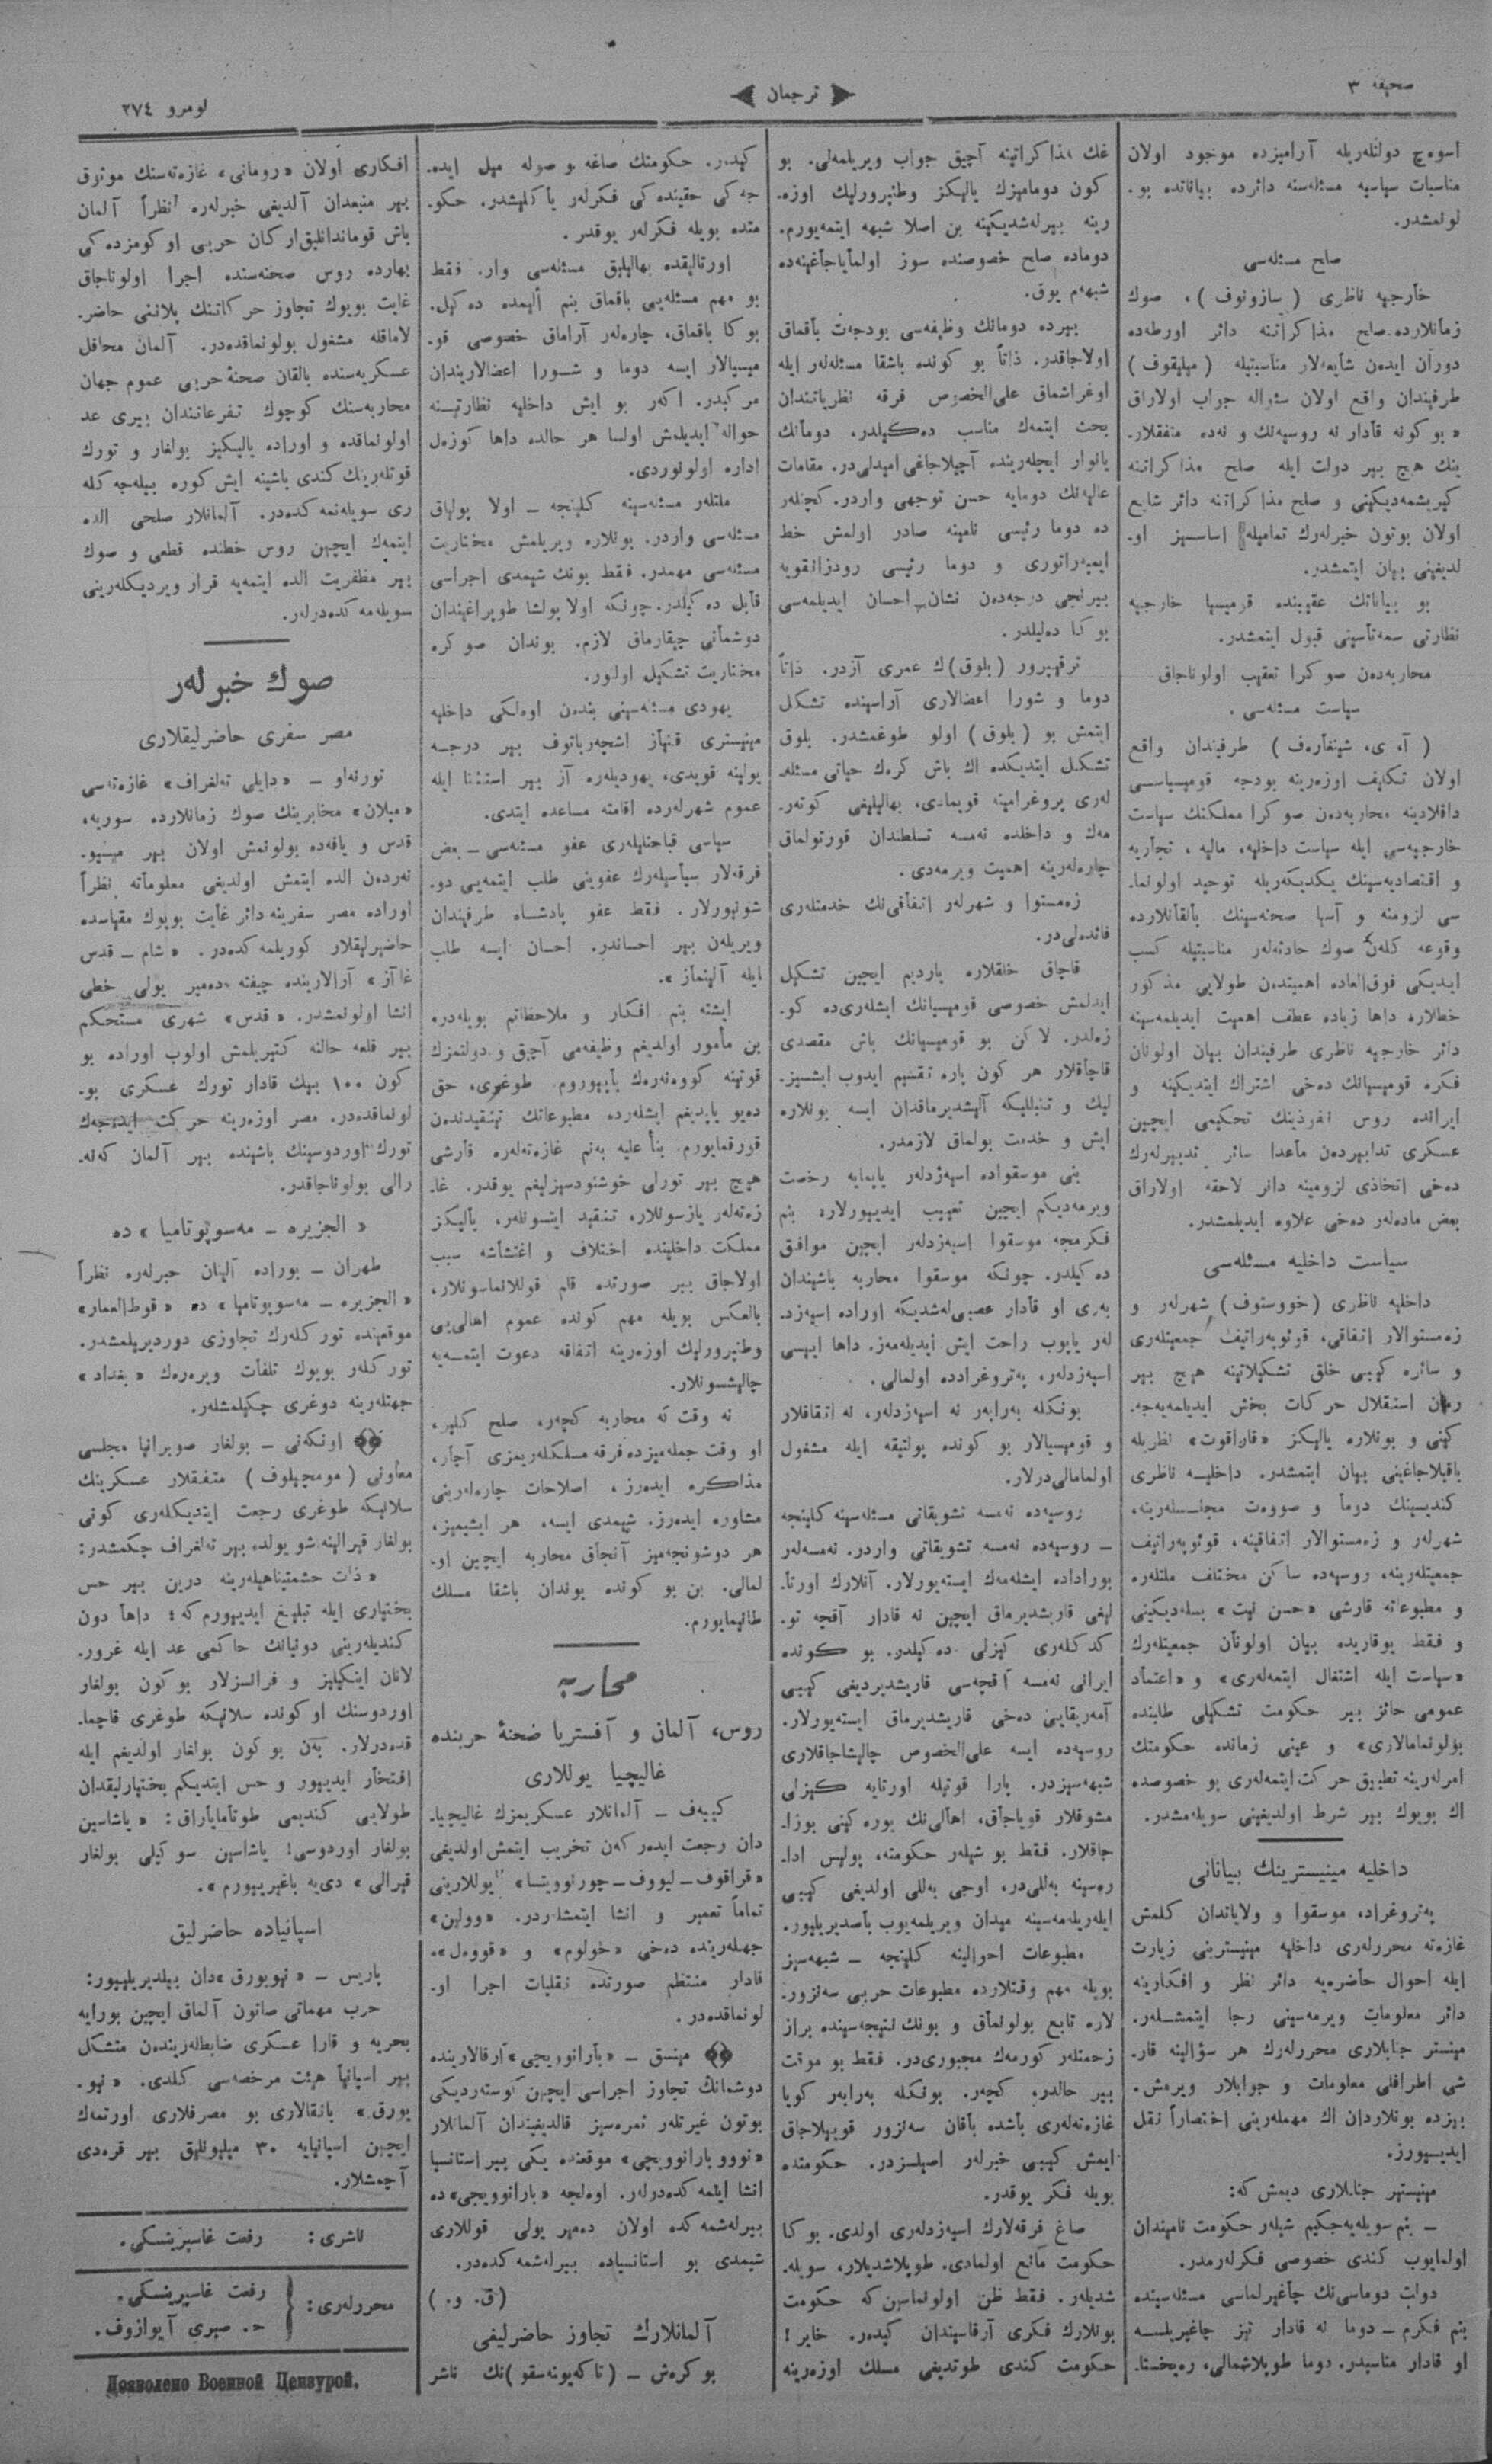 صحیفه ٣
ترجمان
نومرو ٢٧٤
اسوه‌چ دولتلریله آرامیزده موجود اولان
مناسبات سیاسیه مسئله‌سنه دائرده بیاناتده بو-
لونمشدر.
صلح مسئله‌سی
خارجیه ناظری (سازونوف)، صوك
زمانلارده صلح مذاكراتنه دائر اورطه‌ده
دوران ایدەن شایعه‌لار مناسبتیله (میلیقوف)
طرفیندان واقع اولان سئواله جواب اولاراق
«بو كونه قادار نه روسیه‌نك و نه‌ده متفقلار-
ینك هیچ بیر دولت ایله صلح مذاكراتنه
كیریشمه‌دیكینی و صلح مذاكراتنه دائر شایع
اولان بوتون خبرلەرك تمامیله اساسسیز او-
لدیغینی بیان ایتمشدر.
بو بیاناتك عقبینده قومیسیا خارجیه
نظارتی سمه‌تاسینی قبول ایتمشدر.
محاربه‌دەن صوكرا تعقیب اولوناجاق
سیاست مسئله‌سی.
(آ. ی. شینغارەف) طرفیندان واقع
اولان تكلیف اوزەرینه بودجه قومیسیاسی
داقلادینه محاربه‌دەن صوكرا مملكتك سیاست
خارجیه‌سی ایله سیاست داخلیه، مالیه، تجاریه
و اقتصادیه‌سینك یكدیكەریله توحید اولونما-
سی لزومنه و آسیا صحنه‌سینك بالقانلارده
وقوعه كلەن صوك حادثه‌لەر مناسبتیله كسب
ایدیكی فوق‌العاده اهمیتدەن طولایی مذكور
خطلاره داها زیاده عطف اهمیت ایدیلمه‌سینه
دائر خارجیه ناظری طرفیندان بیان اولونان
فكره قومیسیانك دەخی اشتراك ایتدیكینه و
ایرانده روس نفوذینك تحكیمی ایچین
عسكری تدابیردەن ماعدا سائر تدبیرلەرك
دەخی اتخاذی لزومینه دائر لاحقه اولاراق
بعض ماده‌لەر دەخی علاوه ایدیلمشدر.
سیاست داخلیه مسئله‌سی
داخلیه ناظری (خووستوف) شهرلەر و
زەمستوالار اتفاقی، قوئوپه‌راتیف جمعیتلەری
و سائره كیبی خلق تشكیلاتینه هیچ بیر
زمان استقلال حركات بخش ایدیلمه‌یه‌جه-
كینی و بونلاره یالیكز «قاراقوت» نظریله
باقیلاجاغینی بیان ایتمشدر. داخلیه ناظری
كندیسینك دوما و صووەت مجلسلەرینه،
شهرلەر و زەمستوالار اتفاقینه، قوئوپه‌راتیف
جمعیتلەرینه، روسیه‌ده ساكن مختلف ملتلەره
و مطبوعاته قارشی «حسن نیت» بسله‌دیكینی
و فقط یوقاریده بیان اولونان جمعیتلەرك
«سیاست ایله اشتغال ایتمه‌لەری» و «اعتماد
عمومی حائز بیر حكومت تشكیلی طلبنده
بولونمامالاری» و عینی زمانده حكومتك
امرلەرینه تطبیق حركت ایتمه‌لەری بو خصوصده
اك بویوك بیر شرط اولدیغینی سویله‌مشدر.
داخلیه مینیسترینك بیاناتی
پەتروغراد، موسقوا و ولایاتدان كلمش
غازەته محررلەری داخلیه مینیسترینی زیارت
ایله احوال حاضره‌یه دائر نظر و افكارینه
دائر معلومات ویرمه‌سینی رجا ایتمشلەر.
مینستر جنابلاری محررلەرك هر سؤالینه قار-
شی اطرافلی معلومات و جوابلار ویرمش.
بیزده بونلاردان اك مهملەرینی اختصاراً نقل
ایدییورز.
مینیستیر جنابلاری دیمش كه:
— بنم سویله‌یه‌جكیم شیلەر حكومت نامیندان
اولمایوب كندی خصوصی فكرلەرمدر.
دولت دوماسی‌نك چاغیرلماسی مسئله‌سینده
بنم فكرم — دوما نه قادار تیز چاغیریلسه
او قادار مناسبدر. دوما طوپلاشمالی، رەیخستا-
غك مذاكراتینه آچیق جواب ویریلمه‌لی. بو
كون دومامیزك یالیكز وطنپرورلیك اوزه-
رینه بیرله‌شدیكینه بن اصلا شبهه ایتمه‌یورم.
دوماده صلح خصوصنده سوز اولمایاجاغینه‌ده
شبهه‌م یوق.
بیرده دومانك وظیفه‌سی بودجه‌ت باقماق
اولاجاقدر. ذاتاً بو كونده باشقا مسئله‌لەر ایله
اوغراشماق علی‌الخصوص فرقه نظریاتندان
بحث ایتمەك مناسب دەكیلدر، دومانك
یانوار ایچلەرینده آچیلاجاغی امیدلی‌در. مقامات
عالیه‌نك دومایه حسن توجهی واردر. كچنلەر
ده دوما رئیسی نامینه صادر اولمش خط
ایمپه‌راتوری و دوما رئیسی رودزانقویه
بیرنجی درجه‌دەن نشان احسان ایدیلمه‌سی
بوكا دەلیلدر.
ترقیپرور (بلوق)ك عمری آزدر. ذاتاً
دوما و شورا اعضالاری آراسینده تشكل
ایتمش بو (بلوق) اولو طوغمشدر. بلوق
تشكل ایتدیكده اك باش كرەك حیاتی مسئله-
لەری پروغرامینه قویمادی، بهالیلیغی كوتەر-
مەك و داخلده نەمسه تسلطندان قورتولماق
چاره‌لەرینه اهمیت ویرمه‌دی.
زەمستوا و شهرلەر اتفاقی‌نك خدمتلەری
فائده‌لی‌در.
قاچاق خلقلاره یاردیم ایچین تشكیل
ایدلمش خصوصی قومیسیانك ایشلەری‌ده كو-
زەلدر. لاكن بو قومیسیانك باش مقصدی
قاچاقلار هر كون پاره تقسیم ایدوب ایشسیز-
لیك و تنبللیكه آلیشدیرماقدان ایسه بونلاره
ایش و خدمت بولماق لازمدر.
بنی موسقواده اسیەزدلەر یاپمایه رخصت
ویرمه‌دیكم ایچین تعییب ایدییورلار. بنم
فكرمجه موسقوا اسیەزدلەر ایچین موافق
دەكیلدر. چونكه موسقوا محاربه باشیندان
بەری او قادار عصبی‌لەشدیكه اوراده اسیەزد-
لەر یاپوب راحت ایش ایدیله‌مەز. داها ایپسی
اسیەزدلەر، پەتروغرادده اولمالی.
بونكله بەرابەر نه اسیەزدلەر، نه اتفاقلار
و قومیسیالار بو كونده پولتیقه ایله مشغول
اولمامالی‌درلار.
روسیه‌ده نەمسه تشویقاتی مسئله‌سینه كلینجه
— روسیه‌ده نەمسه تشویقاتی واردر. نەمسه‌لەر
بوراده‌ده ایشله‌مەك ایسته‌یورلار. آنلارك اورتا-
لیغی قاریشدیرماق ایچین نه قادار آقچه تو-
كدكلەری كیزلی دەكیلدر. بو كونده
ایرانی نەمسه آقچه‌سی قاریشدیردیغی كیبی
آمه‌ریقایی دەخی قاریشدیرماق ایسته‌یورلار.
روسیه‌ده ایسه علی‌الخصوص چالیشاجاقلاری
شبهه‌سیزدر. پارا قوتیله اورتایه كیزلی
مشوقلار قویاجاق، اهالی‌نك یوره‌كینی بوزا-
جاقلار. فقط بو شیلەر حكومته، پولیس ادا-
ره‌سینه بەللی‌در، اوجی بەللی اولدیغی كیبی
ایلەریله‌مه‌سینه میدان ویریلمه‌یوب باصدیریلیور.
مطبوعات احوالینه كلینجه — شبهه‌سیز
بویله مهم وقتلارده مطبوعات حربی سەنزور-
لاره تابع بولونماق و بونك نتیجه‌سینده براز
زحمتلەر كورمەك مجبوری‌در. فقط بو موقت
بیر حالدر، كچەر. بونكله بەرابەر كویا
غازەته‌لەری باشده باقان سەنزور قویبلاجاق
ایمش كیبی خبرلەر اصیلسزدر. حكومتده
بویله فكر یوقدر.
صاغ فرقه‌لارك اسیەزدلەری اولدی. بوكا
حكومت مانع اولمادی. طوپلاشدیلار، سویله-
شدیلەر. فقط ظن اولونماسین كه حكومت
بونلارك فكری آرقاسیندان كیدەر. خایر!
حكومت كندی طوتدیغی مسلك اوزەرینه
كیدەر. حكومتك صاغه و صوله میل ایده-
جەكی حقینده‌كی فكرلەر یاكلیشدر. حكو-
متده بویله فكرلەر یوقدر.
اورتالیقده بهالیلیق مسئله‌سی وار. فقط
بو مهم مسئله‌یی باقماق بنم ألیمده دەكیل.
بوكا باقماق، چاره‌لەر آراماق خصوصی قو-
میسیالار ایسه دوما و شورا اعضالاریندان
مركبدر. اكەر بو ایش داخلیه نظارتینه
حواله ایدیلەش اولسا هر حالده داها كوزەل
اداره اولونوردی.
ملتلەر مسئله‌سینه كلینجه — اولا پولیاق
مسئله‌سی واردر. بونلاره ویریلمش مختاریت
مسئله‌سی مهمدر. فقط بونك شیمدی اجراسی
قابل دەكیلدر. چونكه اولا پولشا طوپراغیندان
دوشمانی چیقارماق لازم. بوندان صوكره
مختاریت تشكیل اولنور.
یهودی مسئله‌سینی بندەن اوەلكی داخلیه
مینیستری قنیاز اشچەرباتوف بیر درجه
یولینه قویدی، یهودیلەره آز بیر استثنا ایله
عموم شهرلەرده اقامته مساعده ایتدی.
سیاسی قباحتلیلەری عفو مسئله‌سی — بعض
فرقه‌لار سیاسیلەرك عفوینی طلب ایتمه‌یی دو-
شونیورلار. فقط عفو پادشاه طرفیندان
ویریلەن بیر احساندر. احسان ایسه طلب
ایله آلینماز».
ایشته بنم افكار و ملاحظاتم بویله‌در.
بن مأمور اولدیغم وظیفه‌می آچیق و دولتمزك
قوتینه كووه‌نەرەك یاپیورم. طوغری، حق
دەیو یاپدیغم ایشلەرده مطبوعاتك تنقیدندەن
قورقمایورم. بناً علیه بەنم غازەته‌لەره قارشی
هیچ بیر تورلی خوشنودسیزلیغم یوقدر. غا-
زەته‌لەر یازسونلار، تنقید ایتسونلەر، یالیكز
مملكت داخلینده اختلاف و اغتشاشه سبب
اولاجاق بیر صورتده قلم قوللانماسونلار،
بالعكس بویله مهم كونده عموم اهالی‌یی
وطنپرورلیك اوزەرینه اتفاقه دعوت ایتمه‌یه
چالیشسونلار.
نه وقت كه محاربه كچەر، صلح كلیر،
او وقت جمله‌میزده فرقه مسلكلەریمزی آچار،
مذاكره ایدەرز، اصلاحات چاره‌لەرینی
مشاوره ایدەرز. شیمدی ایسه، هر ایشیمیز،
هر دوشونجه‌میز آنجاق محاربه ایچین او-
لمالی. بن بو كونده بوندان باشقا مسلك
طانیمایورم.
محاربه
روس، آلمان و آفستریا صحنهٔ حربنده
غالیچیا یوللاری
كیيەف — آلمانلار عسكریمزك غالیچیا-
دان رجعت ایدەركەن تخریب ایتمش اولدیغی
«قراقوف — لیووف — چورنوویتسا» یوللارینی
تماماً تعمیر و انشا ایتمشلەردر. «وولین»
جهتلەرینده دەخی «خولوم» و «قووەل»-
قادار منتظم صورتده نقلیات اجرا او-
لونماقده‌در.
مینسق — «بارانوویچی» آرقالارینده
دوشمانك تجاوز اجراسی ایچین كوستەردیكی
بوتون غیرتلەر ثمره‌سیز قالدیغیندان آلمانلار
«نووو بارانوویچی» موقعنده یكی بیر استانسیا
انشا ایتمه‌كده‌درلەر. اوەلجه «بارانوویچی» ده
بیرله‌شمه‌كده اولان دەمیر یولی قوللاری
شیمدی بو استانسیاده بیرله‌شمه‌كده‌در.
(ق. و.)
آلمانلارك تجاوز حاضرلیغی
بوكرەش — (تاكه یونه‌سقو)نك ناشر
افكاری اولان «رومانی» غازەته‌سنك موثوق
بیر منبعدان آلدیغی خبرلەره نظراً آلمان
باش قومانداناق اركان حربی اوكومزده‌كی
بهارده روس صحنه‌سنده اجرا اولوناجاق
غایت بویوك تجاوز حركاتنك پلاننی حاضر-
لاماقله مشغول بولونماقده‌در. آلمان محافل
عسكریه‌سنده بالقان صحنهٔ حربی عموم جهان
محاربه‌سنك كوچوك تفرعاتندان بیری عد
اولونماقده و اوراده یالیكیز بولغار و تورك
قوتلەرینك كندی باشینه ایش كوره بیله‌جه‌كله-
ری سویله‌نمه‌كده‌در. آلمانلار صلحی الده
ایتمەك ایچین روس خطنده قطعی و صوك
بیر مظفریت الده ایتمه‌یه قرار ویردیكلەرینی
سویله‌مه‌كده‌درلەر.
صوك خبرلەر
مصر سفری حاضرلیقلاری
تورنه‌او — «دایلی تەلغراف» غازەته‌سی
«میلان» مخابرینك صوك زمانلارده سوریه،
قدس و یافه‌ده بولونمش اولان بیر میسیو-
نەردەن الده ایتمش اولدیغی معلوماته نظراً
اوراده مصر سفرینه دائر غایت بویوك مقیاسده
حاضیرلیقلار كوریلمه‌كده‌در. «شام — قدس
غازا» آرالارینده چیفته دەمیر یولی خطی
انشا اولونمشدر. «قدس» شهری مستحكم
بیر قلعه حالنه كتیریلمش اولوب اوراده بو
كون ١٠٠ بیك قادار تورك عسكری بو-
لونماقده‌در. مصر اوزەرینه حركت ایده‌جەك
تورك اوردوسینك باشینده بیر آلمان كەنه-
رالی بولوناجاقدر.
«الجزیره — مه‌سوپوتامیا» ده
طهران — بوراده آلینان خبرلەره نظراً
«الجزیره — مه‌سوپوتامیا» ده «قوط‌العمار»
موقعینده توركلەرك تجاوزی دوردیریلمشدر.
توركلەر بویوك تلفات ویرەرەك «بغداد»
جهتلەرینه دوغری چكیلمشلەر.
اونكەنی — بولغار صوبرانیا مجلسی
معاونی (مومچیلوف) متفقلار عسكرینك
سلانیكه طوغری رجعت ایتدیكلەری كونی
بولغار قیرالینه شو یولده بیر تەلغراف چكمشدر:
«ذات حشمتپناهیلەرینه درین بیر حس
بختیاری ایله تبلیغ ایدییورم كه: داها دون
كندیلەرینی دونیانك حاكمی عد ایله غرور-
لانان اینكلیز و فرانسزلار بو كون بولغار
اوردوسنك اوكونده سلانیكه طوغری قاچما-
قده‌درلار. بەن بو كون بولغار اولدیغم ایله
افتخار ایدییور و حس ایتدیكم بختیارلیقدان
طولایی كندیمی طوتامایاراق: «یاشاسین
بولغار اوردوسی! یاشاسین سوكیلی بولغار
قیرالی» دی‌یه باغیرییورم».
اسپانیاده حاضرلیق
پاریس — «نیویورق»دان بیلدیریلییور:
حرب مهماتی صاتون آلماق ایچین بورایه
بحریه و قارا عسكری ضابطلەریندەن متشكل
بیر اسپانیا هیئت مرخصه‌سی كلدی. «نیو-
یورق» بانقالاری بو مصرفلاری اورتمەك
ایچین اسپانیایه ٣٠ میلیونلیق بیر قرەدی
آچمشلار.
ناشری: رفعت غاسپرینسكی.
محررلەری: رفعت غاسپرینسكی.
ح. صبری آیوازوف.
Дозволено Военной Цензурой.